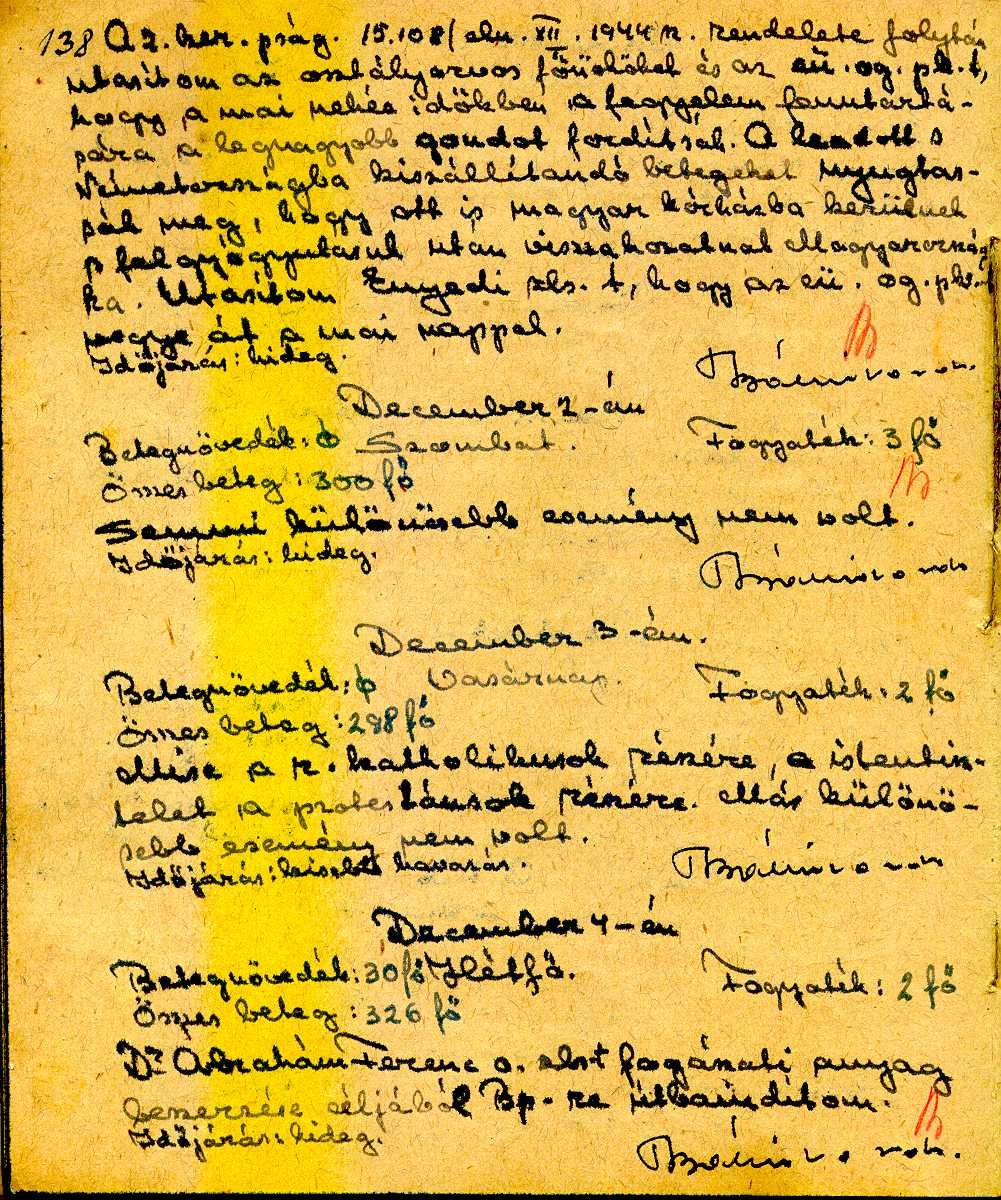 138 A 2. ker. pság. 15.108/eln. XII. 1944 sz. rendelete folytán
utasítom az osztályorvos főnököket és az eü. og. pk.-t,
hogy a mai nehéz időkben a fegyelem fenntartá-
sára a legnagyobb gondot fordítsák. A leadott s
Németországba kiszállítandó betegeket nyugtas-
sák meg, hogy ott is magyar kórházba kerülnek
s felgyógyulásuk után visszahozatnak Magyarország-
ra. Utasítom Enyedi zls.-t, hogy az eü. og. pk.-t
vegye át a mai nappal.
Időjárás: hideg.
December 2-án
Betegnövedék: ϕ Szombat. Fogyaték: 3 fő
Összes beteg: 300 fő
Semmi különösebb esemény nem volt.
Időjárás: hideg.
December 3-án.
Betegnövedék: ϕ Vasárnap. Fogyaték: 2 fő
Összes beteg: 298 fő
Mise a r. katholikusok részére, a istentisz-
telet a protestánsok részére. Más különö-
sebb esemény nem volt.
Időjárás: kisebb havazás.
December 4-én
Betegnövedék: 30 fő Hétfő. Fogyaték: 2 fő
Összes beteg: 326 fő
Dr Abrahám Ferenc o. zlst fogászati anyag
beszerzése céljából Bp.-re útbaindítom.
Időjárás: hideg.